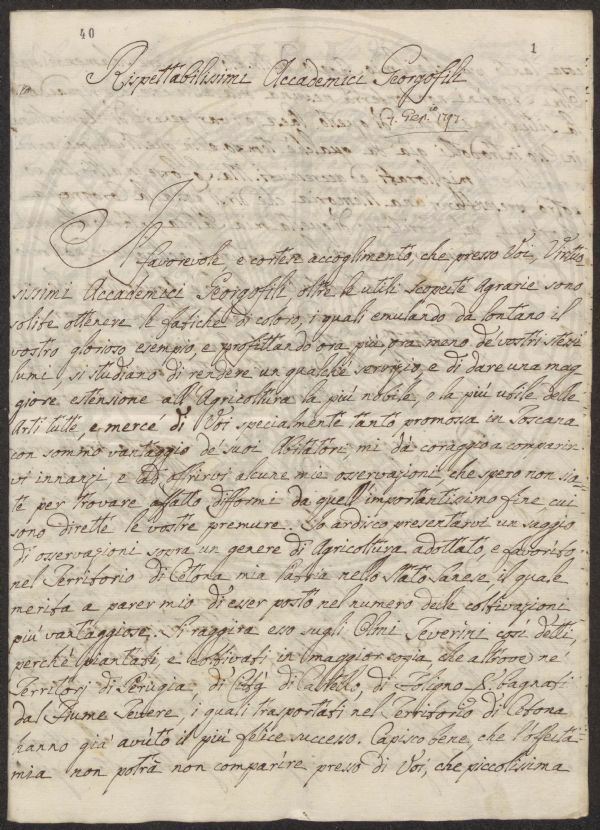 40
1
Rispettabilissimi Accademici Georgofili
4. Gen.io 1797.
Il favorevole e cortese accoglimento, che presso Voi, Virtuo-
sissimi Accademici Georgofili oltre le utili scoperte agrarie sono
solite ottenere le fatiche di coloro, i quali emulando da lontano il
vostro glorioso esempio, e profittando ora più, ora meno de' vostri stessi
lumi, si studiano di rendere un qualche servizio, e di dare una mag-
giore estensione all'Agricoltura la più nobile, e la più utile delle
Arti tutte, e mercé di Voi specialmente tanto promossa in Toscana
con sommo vantaggio de' suoi Abitatori, mi dà coraggio a comparir-
vi innanzi, e ad offrirvi alcune mie osservazioni, che spero non sia-
te per trovare affatto difformi da quell'importantissimo fine, cui
sono dirette le vostre premure. Io ardisco presentarvi un saggio
di osservazioni sopra un genere di Agricoltura adottato, e favorito
nel Territorio di Cetona mia Patria nello Stato Sanese, il quale
merita a parer mio di esser posto nel numero delle coltivazioni
più vantaggiose. Si raggira esso sugli Olmi Teverini così detti,
perchè piantati, e coltivati in maggior copia, che altrove, ne'
Territorj di Perugia, di Città di Castello, di Foligno bagnati
dal Fiume Tevere, i quali trasportati nel Territorio di Cetona
hanno già avuto il più felice successo. Capisco bene, che l'offerta
mia non potrà non comparire presso di Voi, che piccolissima